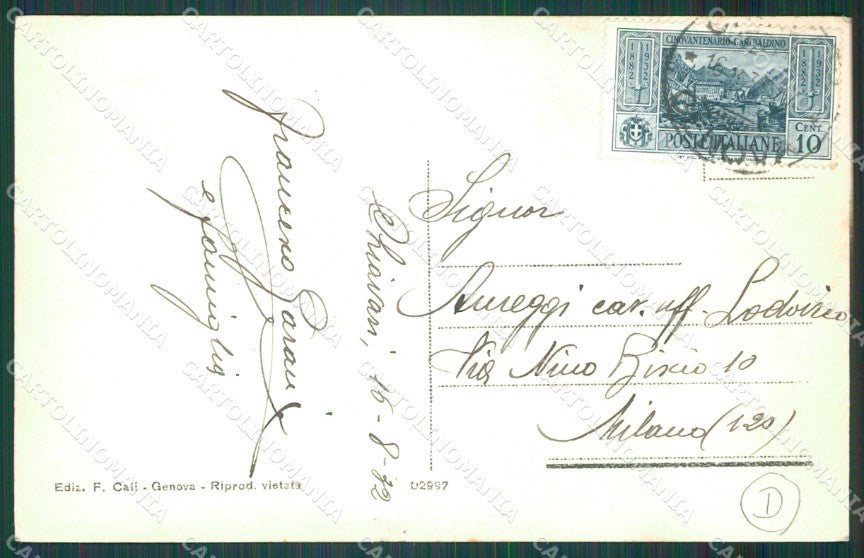 CINQVANTENARIO GARIBALDINO
1882
1932
1882
1932
CENT.
POSTE ITALIANE 10
Francesco
e famiglia
Chiavari, 16-8-32
Signor
Cav. uff. Lodovico
Via Nino Bixio 10
Milano (120)
Ediz. F. Cali - Genova - Riprod. vietata
D2997
D
CARTOLINOMANIA